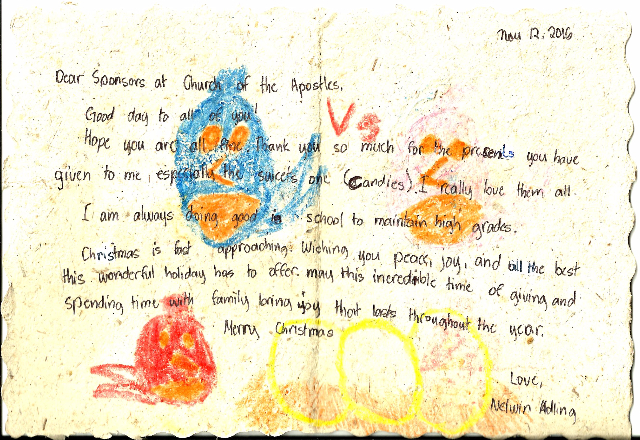 Nov 12, 2016
Dear Sponsors at Church of the Apostles,
Good day to all of you!
Vs
Hope you are all fine. Thank you so much for the presents you have
given to me, especially the sweets one (Candies). I really love them all.
I am always doing good in school to maintain high grades.
Christmas is fast approaching. Wishing you peace, joy, and all the best
this wonderful holiday has to offer. may this incredible time of giving and
spending time with family bring joy that lasts throughout the year.
Merry Christmas
Love,
Nelwin Adling